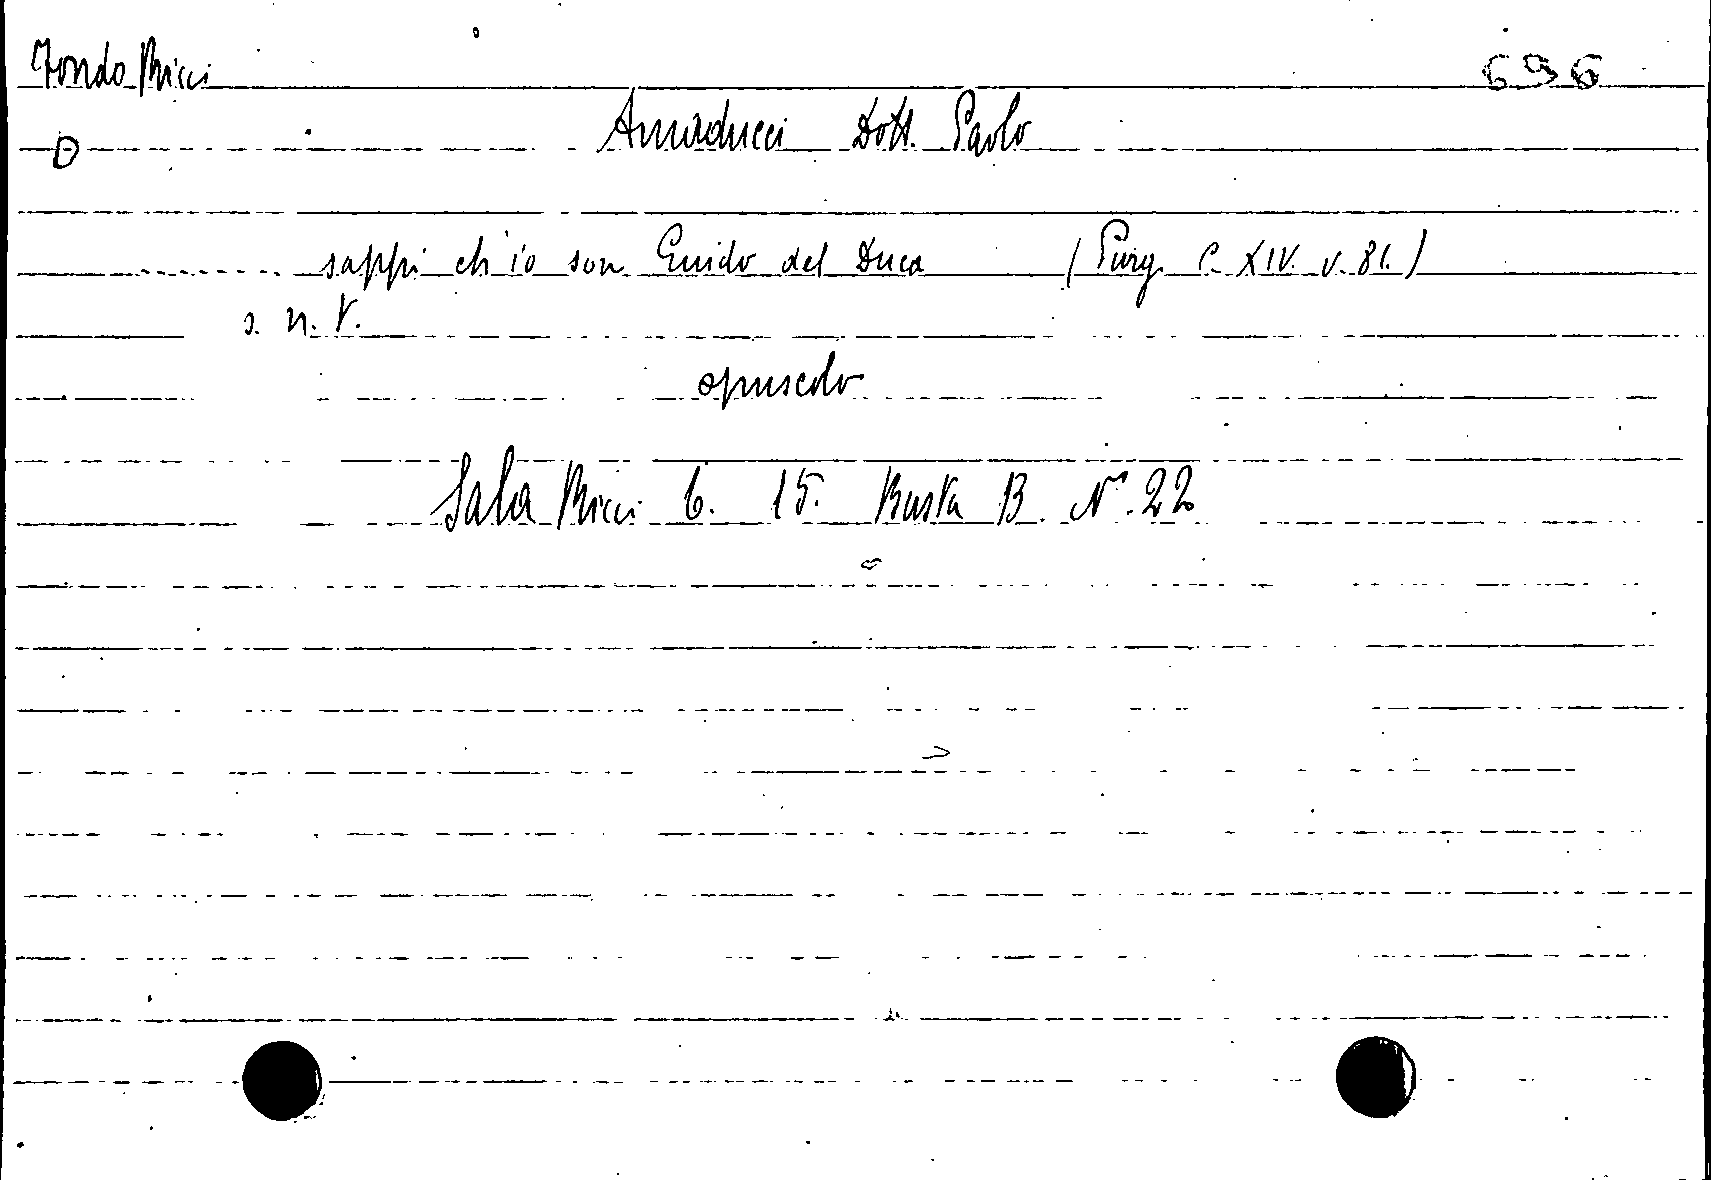 Fondo Ricci
696
Amaducci Dott. Paolo
D
......... sappi ch'io son Guido del Duca (Purg. C. XIV. v. 81.)
s. n. t.
opuscolo
Sala Ricci 6. 15. Busta B. N° 22